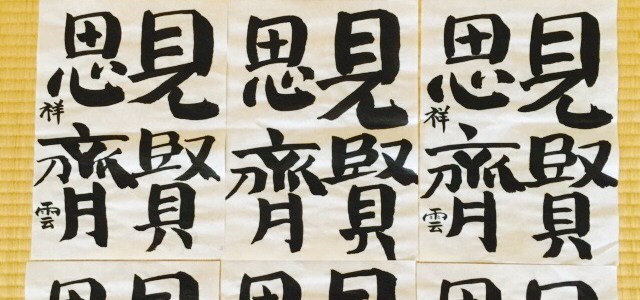 見賢
思齊
祥雲
見賢
思齊
見賢
思齊
祥雲